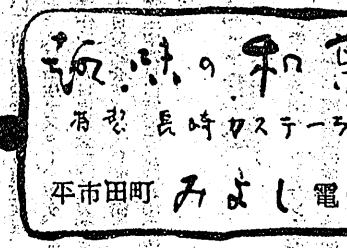 趣味の和
特製 長崎カステーラ
平市田町 みよし 電